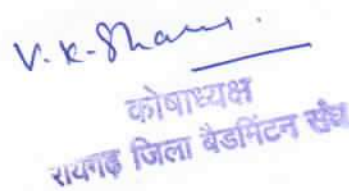 V. K. Sharma
कोषाध्यक्ष
रायगढ़ जिला बैडमिंटन संघ